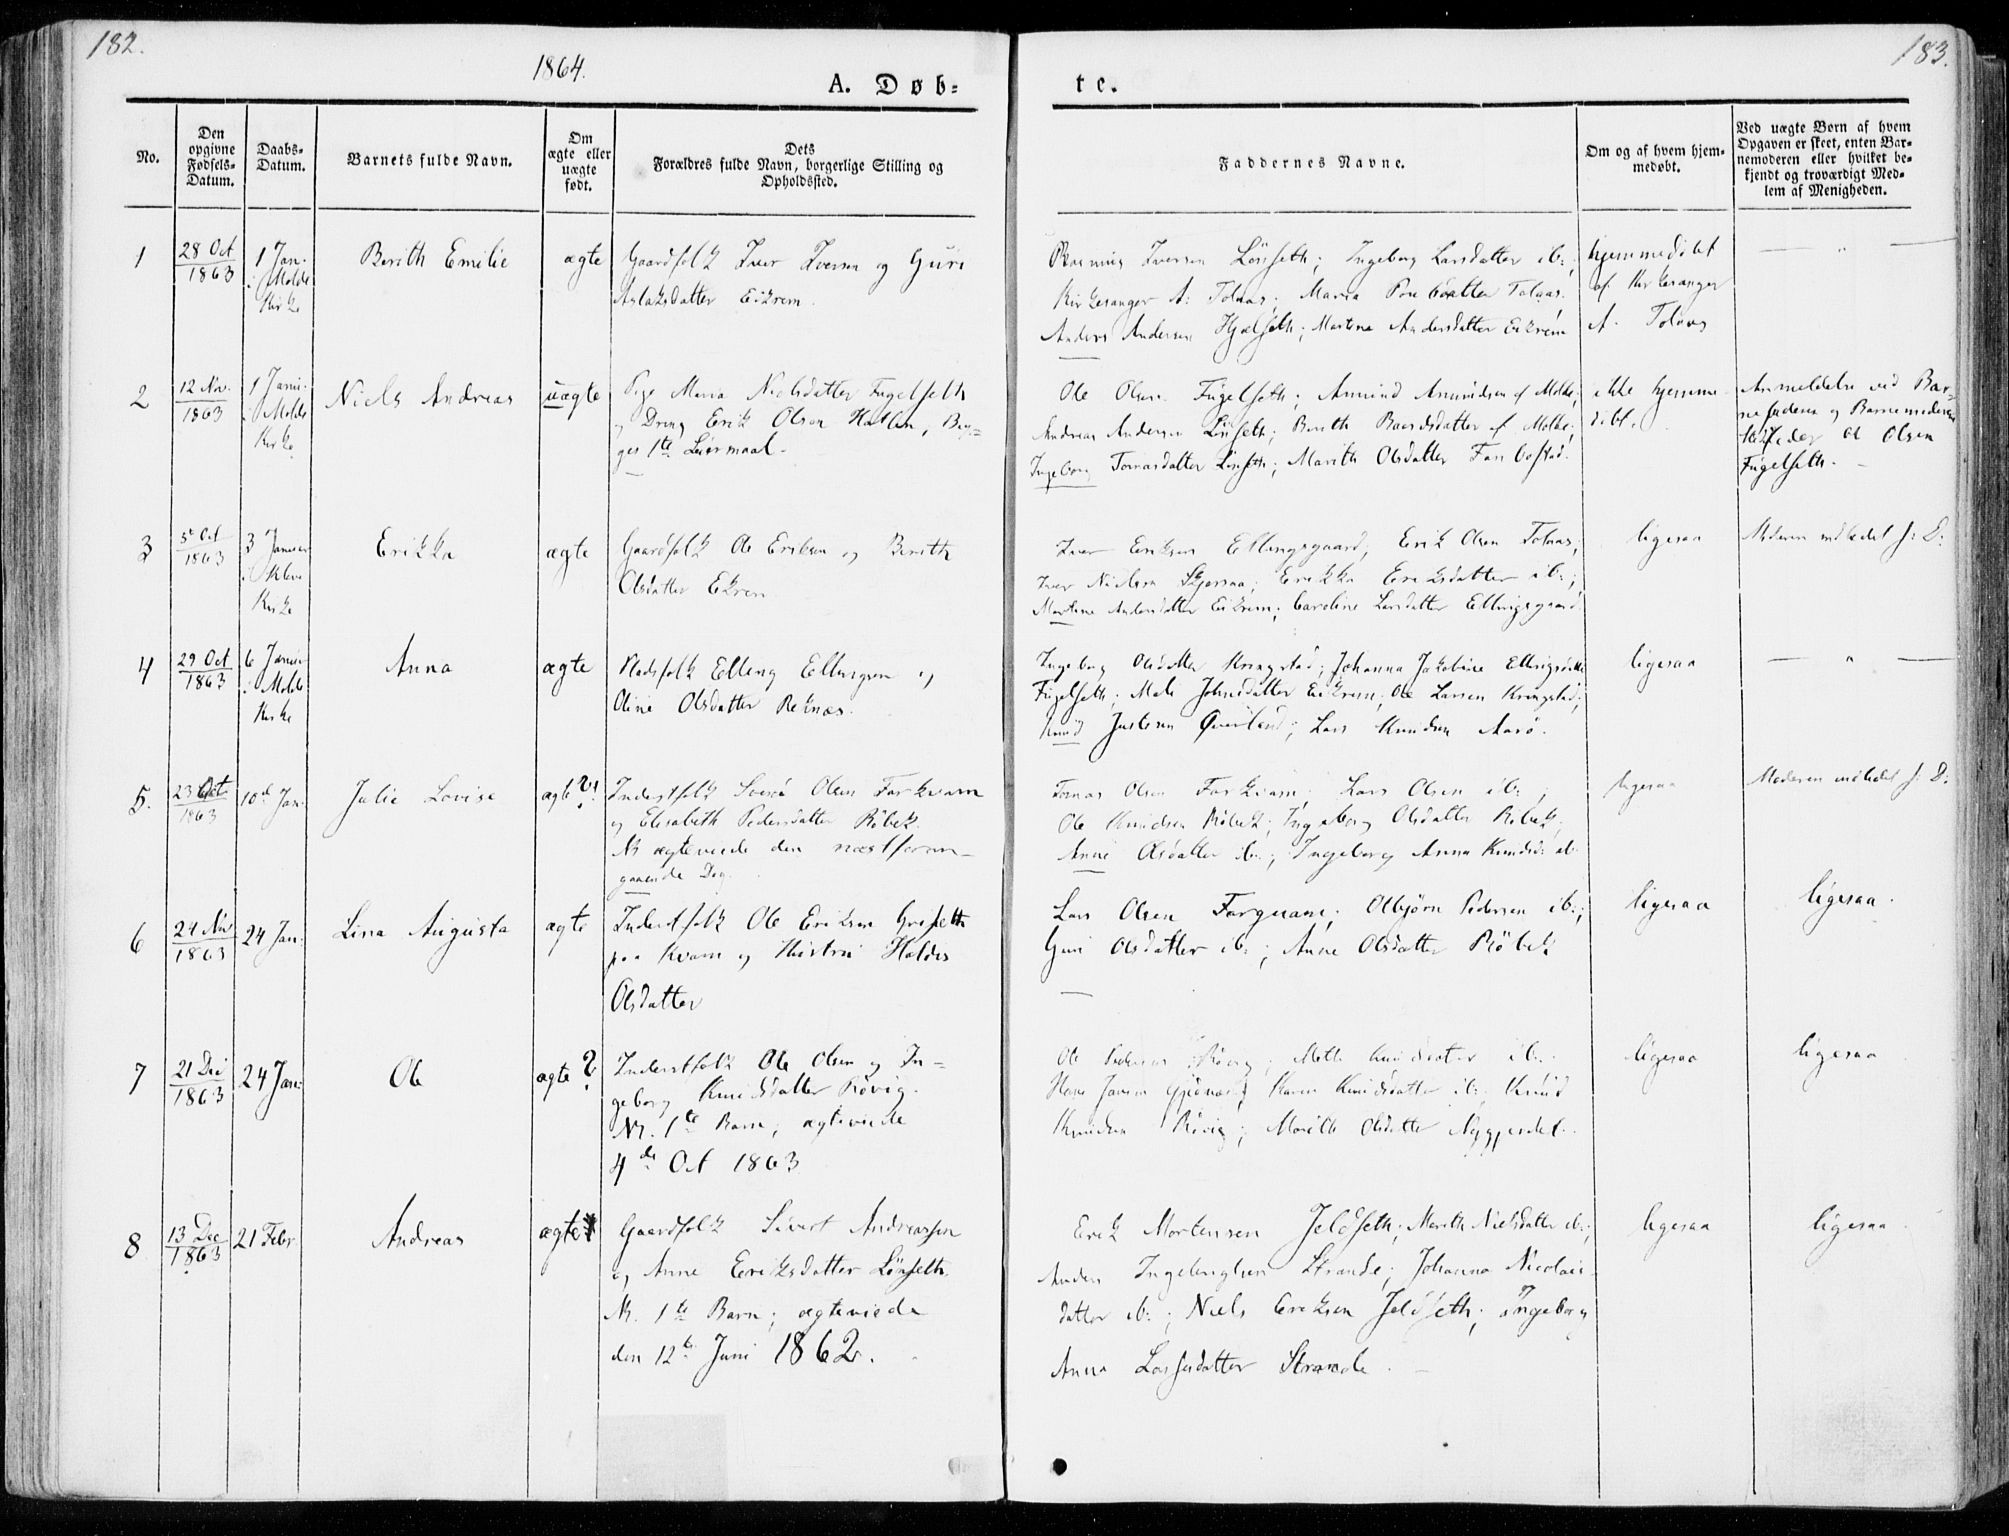 182.
1864.
A. Døb-
te.
183.
No.
Den opgivne Fødsels-Datum.
Daabs-Datum.
Barnets fulde Navn.
Om ægte eller uægte født.
Dets Forældres fulde Navn, borgerlige Stilling og Opholdssted.
Faddernes Navne.
Om og af hvem hjemmedøbt.
Ved uægte Børn af hvem Opgaven er skeet, enten Barnemoderen eller hvilket bekjendt og troværdigt Medlem af Menigheden.
1
28 Oct 1863
1 Jan. i Molde Kirke
Berith Emilie
ægte
Gaardfolk Iver Iversen og Guri
Aslaksdatter Eikrem.
Iversen Lönseth; Ingeborg Larsdatter ib:;
Kirkesanger A: Tolaas; Maria Tolaas.
Anders Andersen Hjelseth; Martine Andersdatter Eikrem
hjemmedöbt
af Kirkesanger
A. Tolaas
— " —
2
12 Nov. 1863
1 Janu. i Molde Kirke
Niels Andreas
uægte
Pige Maria Nielsdatter Fugelseth
og Dreng Erik Olsen Hatlen, Beg-
ges 1te Leiermaal.
Ole Olsen Fugelseth; Amund Amundsen af Molde;
Andreas Andersen Lönseth; Berith Baardsdatter af Molde;
Ingeborg Tomasdatter Lönseth; Marith Olsdatter Farbostad.
ikke hjemme-
döbt.
Anmeldelse ved Bar-
nefaderen og Barnemoderens
Ole Olsen
Fugelseth.
3
5t Oct 1863
3 Januar i Kleve Kirke
Erikka
ægte
Gaardfolk Ole Eriksen og Berith
Olsdatter Ekrem
Iver Eriksen Ellingsgaard; Erik Olsen Tolaas;
Iver Nielsen; Erikka Eriksdatter ib:;
Martine Andersdatter Eikrem; Caroline Larsdatter Ellingsgaard.
ligesaa
Moderen indledet s: D:
4
29 Oct 1863
6 Januar i Molde Kirke
Anna
ægte
Pladsfolk Elling Ellingsen og
Oline Olsdatter Reknæs.
Ingeborg Olsdatter Kringstad; Johanna Jakobine
Fugelseth; Mali Johnsdatter Eikrem; Ole Larsen Kringstad;
Knud Justesen Överland; Lars Knudsen Aarö.
ligesaa
— " —
5.
23 Oct 1863
10de Jan:
Julie Lovise
ægte?
Inderstfolk Olsen Farkvam
og Elisabeth Pedersdatter Röbek.
Nb ægteviede den næstforan-
gaaende Dag.
Tomas Olsen Farkvam; Lars Olsen ib:;
Ole Knudsen Röbek; Ingeborg Olsdatter Röbek;
Anne Olsdatter ib:; Ingeborg Anna Knudsd: ib:
ligesaa
Moderen indledet s: D:
6
24 Nov 1863
24 Jan:
Lina Augusta
ægte
Inderstfolk Ole Eriksen Griseth
paa Kvam og Hustru Haldis
Olsdatter
Lars Olsen Fargvam; Olbjörn Pedersen ib:;
Guri Olsdatter ib:; Anne Olsdatter Röbek
ligesaa
ligesaa.
7
21 Dec 1863
24 Jan:
Ole
ægte?
Inderstfolk Ole Olsen og In-
geborg Knudsdatter Rövig.
Nb. 1te Barn; ægteviede
4de Oct 1863
Ole Pedersen Rövig; Knudsdatter ib:.
Hans Jansen; Karen Knudsdatter ib:; Knud
Knudsen Rövig; Marith Olsdatter
ligesaa
ligesaa
8
13 Dec 1863
21 Febr
Andreas
ægte
Gaardfolk Sivert Andreassen
og Anne Eriksdatter Lönseth.
Nb. 1te Barn; ægteviede
den 12te Juni 1862.
Erik Mortensen Jeldseth; Marith Nielsdatter ib:;
Anders Ingebrigtsen Strande; Johanna Nicolai-
datter ib:; Niels Eriksen Jeldseth; Ingeborg
Anna Lassesdatter Strande.
ligesaa
ligesaa.